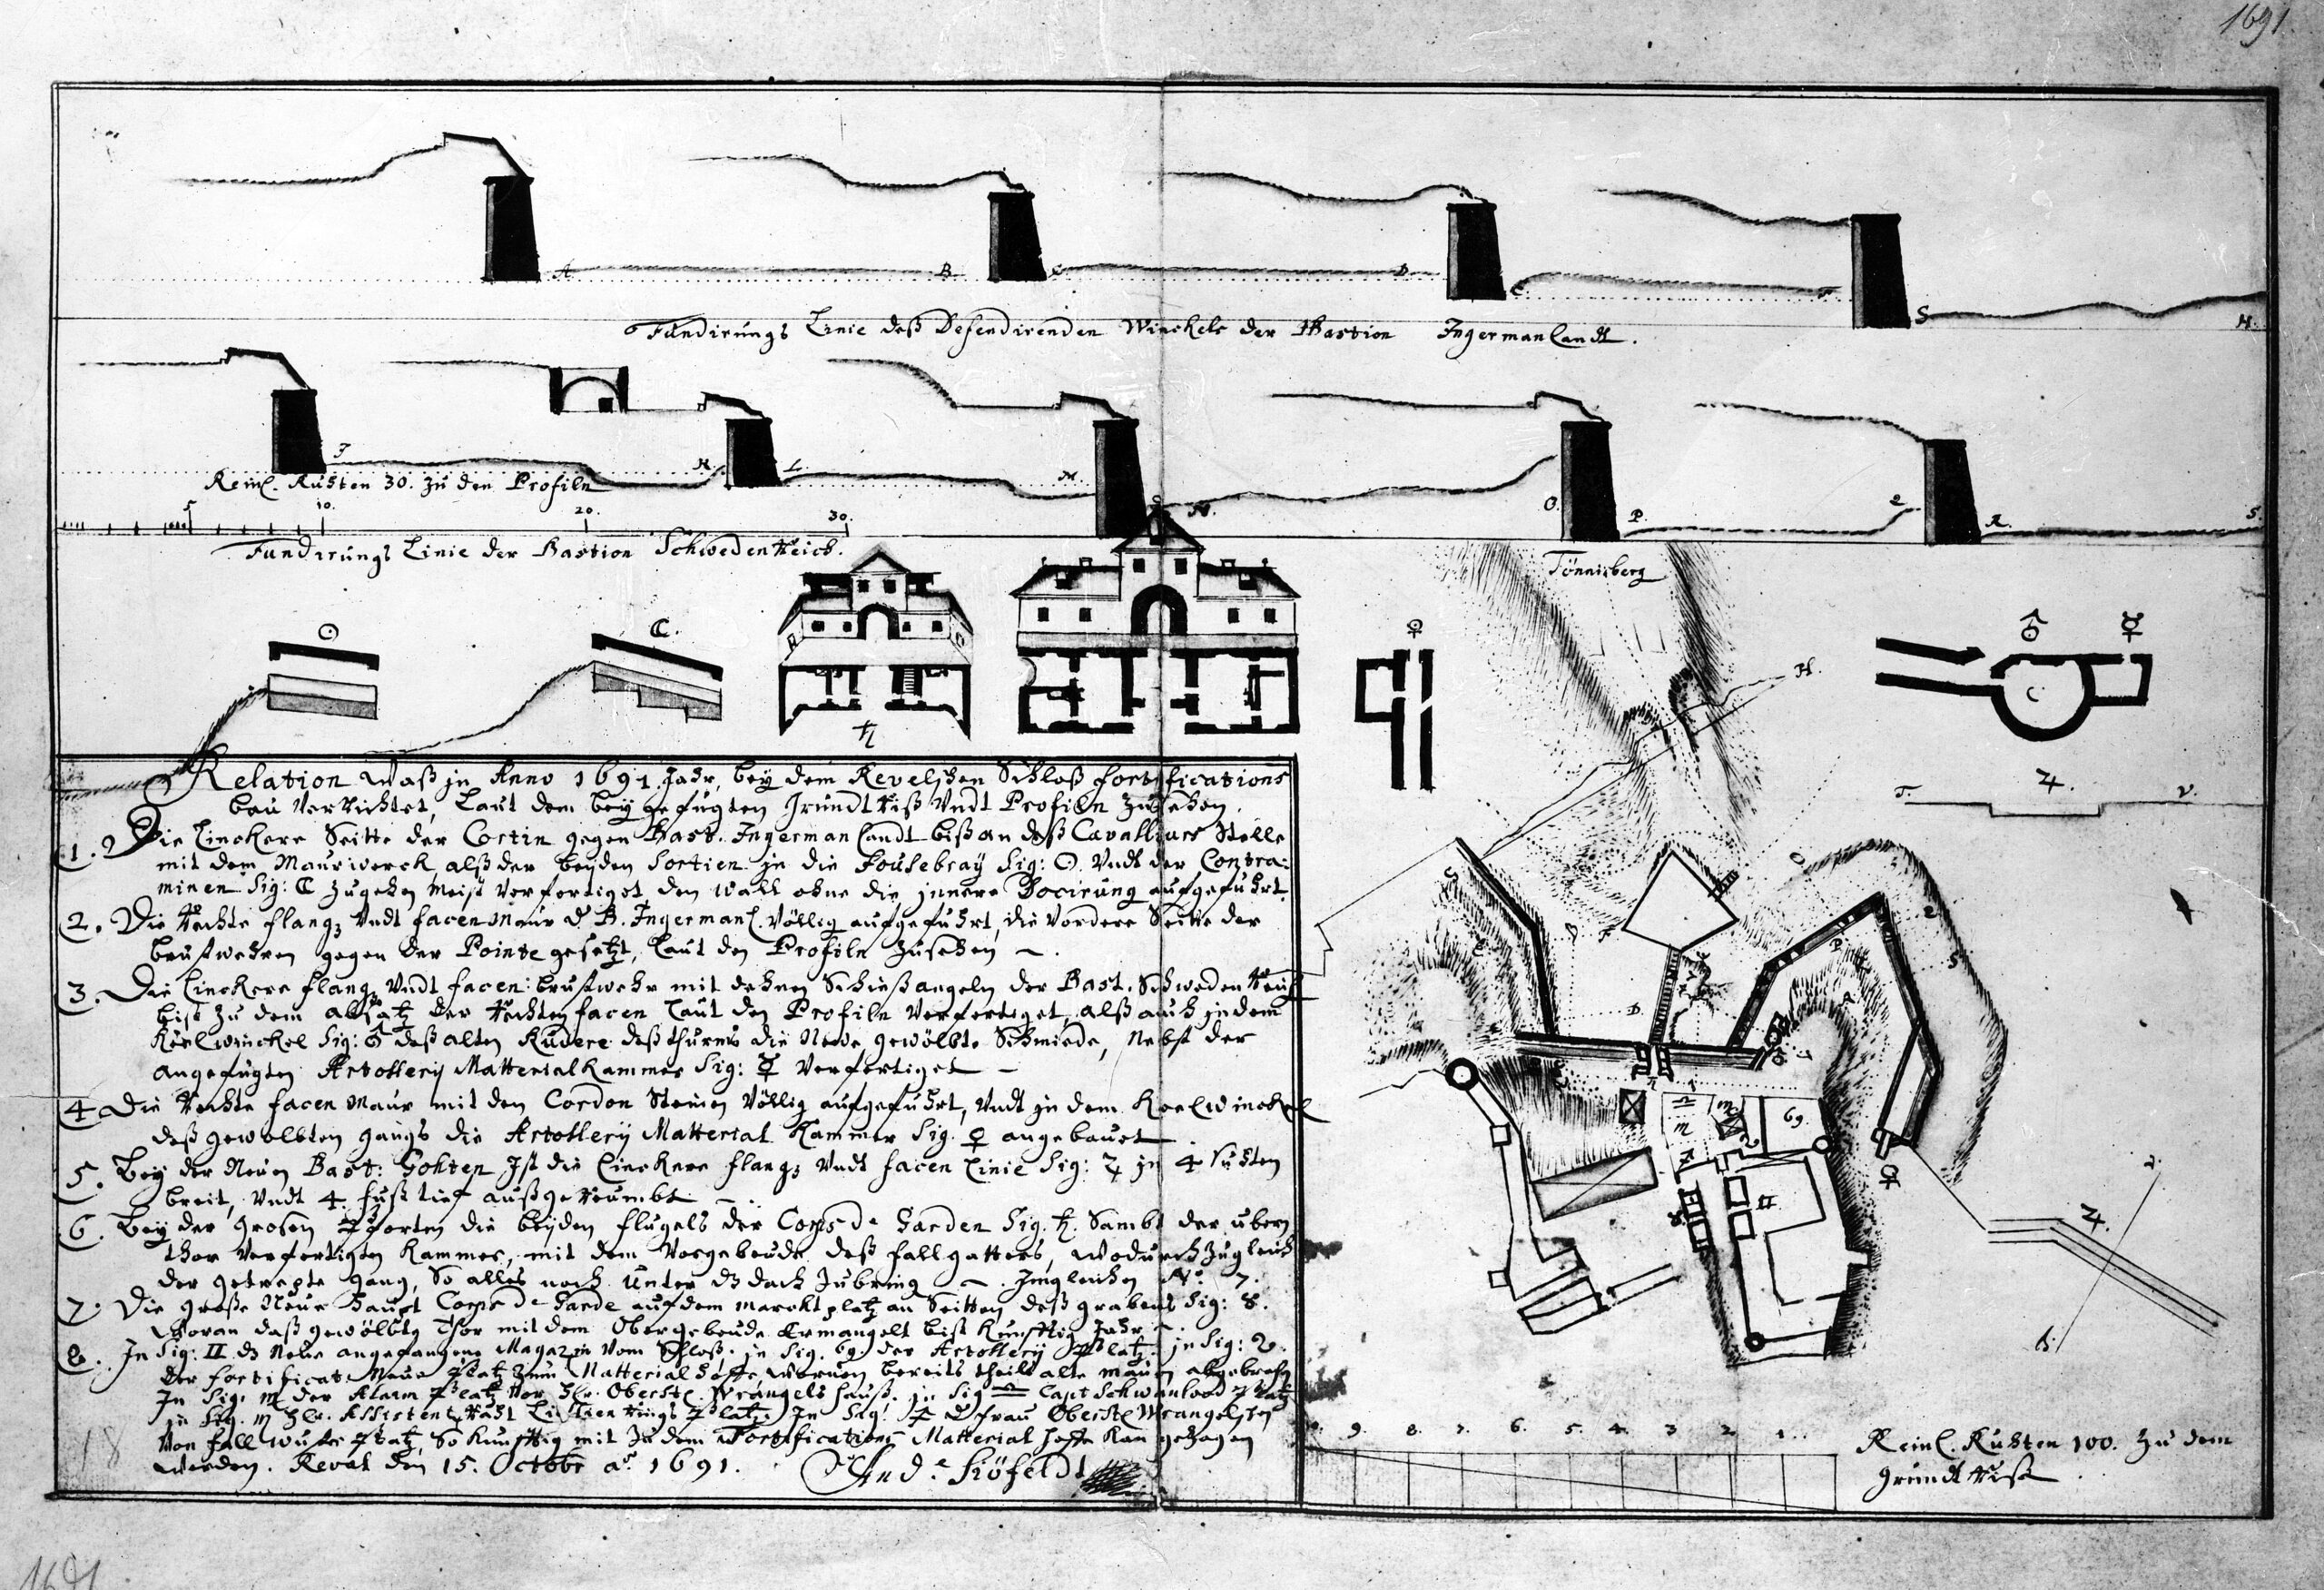 1691.
A B C D E F S H.
Fundirungs Linie deß Defendirenden Winckels der Bastion Ingermanlandt.
J K L M N. O. P. Q R. S.
Reinl. Ruhten 30. zu den Profiln
5 10. 20. 30.
Fundirungs Linie der Bastion Schweden Reich.
Tönnisberg
☉ ☾. ♄ ♀ ♂ ☿
H.
♃.
T. V.
Relation Waß in Anno 1691. Jahr, bey dem Revelschen Schloß fortifications
bau Verrichtet, Laut dem bey gefügten Grundt Riß Undt Profiln zusehen.
1. Die Linckere Seitte der Cortin gegen Bast. Ingermanlandt biß an deß Cavalliurs Stelle
mit dem Maurwerck, alß der beyden Sortien in die Fousebray Sig: ☉. Undt der Contra:
minen Sig: ☾ zugehen meist Verfertiget, den Wall ohne die innere Docirung aufgeführt.
2. Die Rechte flanq; Undt facen Maur d. B. Ingermanl. Völlig aufgeführt, die Vordere Seitte der
brustwehren gegen der Pointe gesetzt, Laut den Profiln zusehen.
3. Die Linckere flanq, Undt facen: brustwehr mit dehnen Schießangeln der Bast. Schweden Reich
bist zu dem absatz der Rechten facen Laut den Profiln Verfertiget, alß auch in dem
Keelwinckel Sig: ♂ deß alten Rudere deß thurms die Newe gewölbte Schmiede, Nebst der
angefügten Artollerij Matterialkammer Sig: ☿ Verfertiget
4 Die Rechte facen Maur mit den Cordon Steinen Völlig aufgeführt, Undt in dem Keelwinckel
deß gewölbten gangs die Artollerij Matterial Kammer Sig. ♀ angebauet
5. Bey der Neuen Bast: Gohten Ist die Linckere flanq; Undt facen Linie Sig: ♃ in 4 Ruhten
breit, Undt 4. fuß tief außgeräumbt.
6. Bey der Grosen Pforten die beyden flügels der Corps de Garden Sig. ♄. Sambt der ubern
thor Verfertigten Kammer, mit dem Vorgebeude deß fallgatters, wodurch zugleich
der getrepte gang, So alles noch Unter dz dach zubring. Imgleichen No. 7.
7. Die große Neue Haupt Corps de Garde auf dem marcktplatz an Seitten deß grabens Sig: 8.
Woran daß gewölbte Thor mit dem Obergebeude Ermangelt bist Künfftig Jahr.
8. In Sig: II dz Neue angefangene Magazin vom Schloß. in Sig. 69 der Artollery Platz. in Sig: 2.
der fortificat: Neue Platz zum Matterial hoffe, Worvon bereits theils alte mauren abgebrochen
In Sig. der Alarm Platz Vor Hr. Oberste Wrangels hauß. in Sig Capt Schwanlood Platz
in Sig. ♏ Hr. Assistent Raht Platz. In Sig: d frau Oberste Wrangelschen
Von fall Platz, So Künfftig mit Zu dem Fortifications Matterial hoffe Kan gezogen
werden. Reval den 15. Octobr ao. 1691. And: Siöfeldt
G E F D P Q S R 69. II 8
♃.
9. 8. 7. 6. 5. 4. 3. 2. 1.
Reinl. Ruhten 100. zu dem
Grundt Riß
18
1691